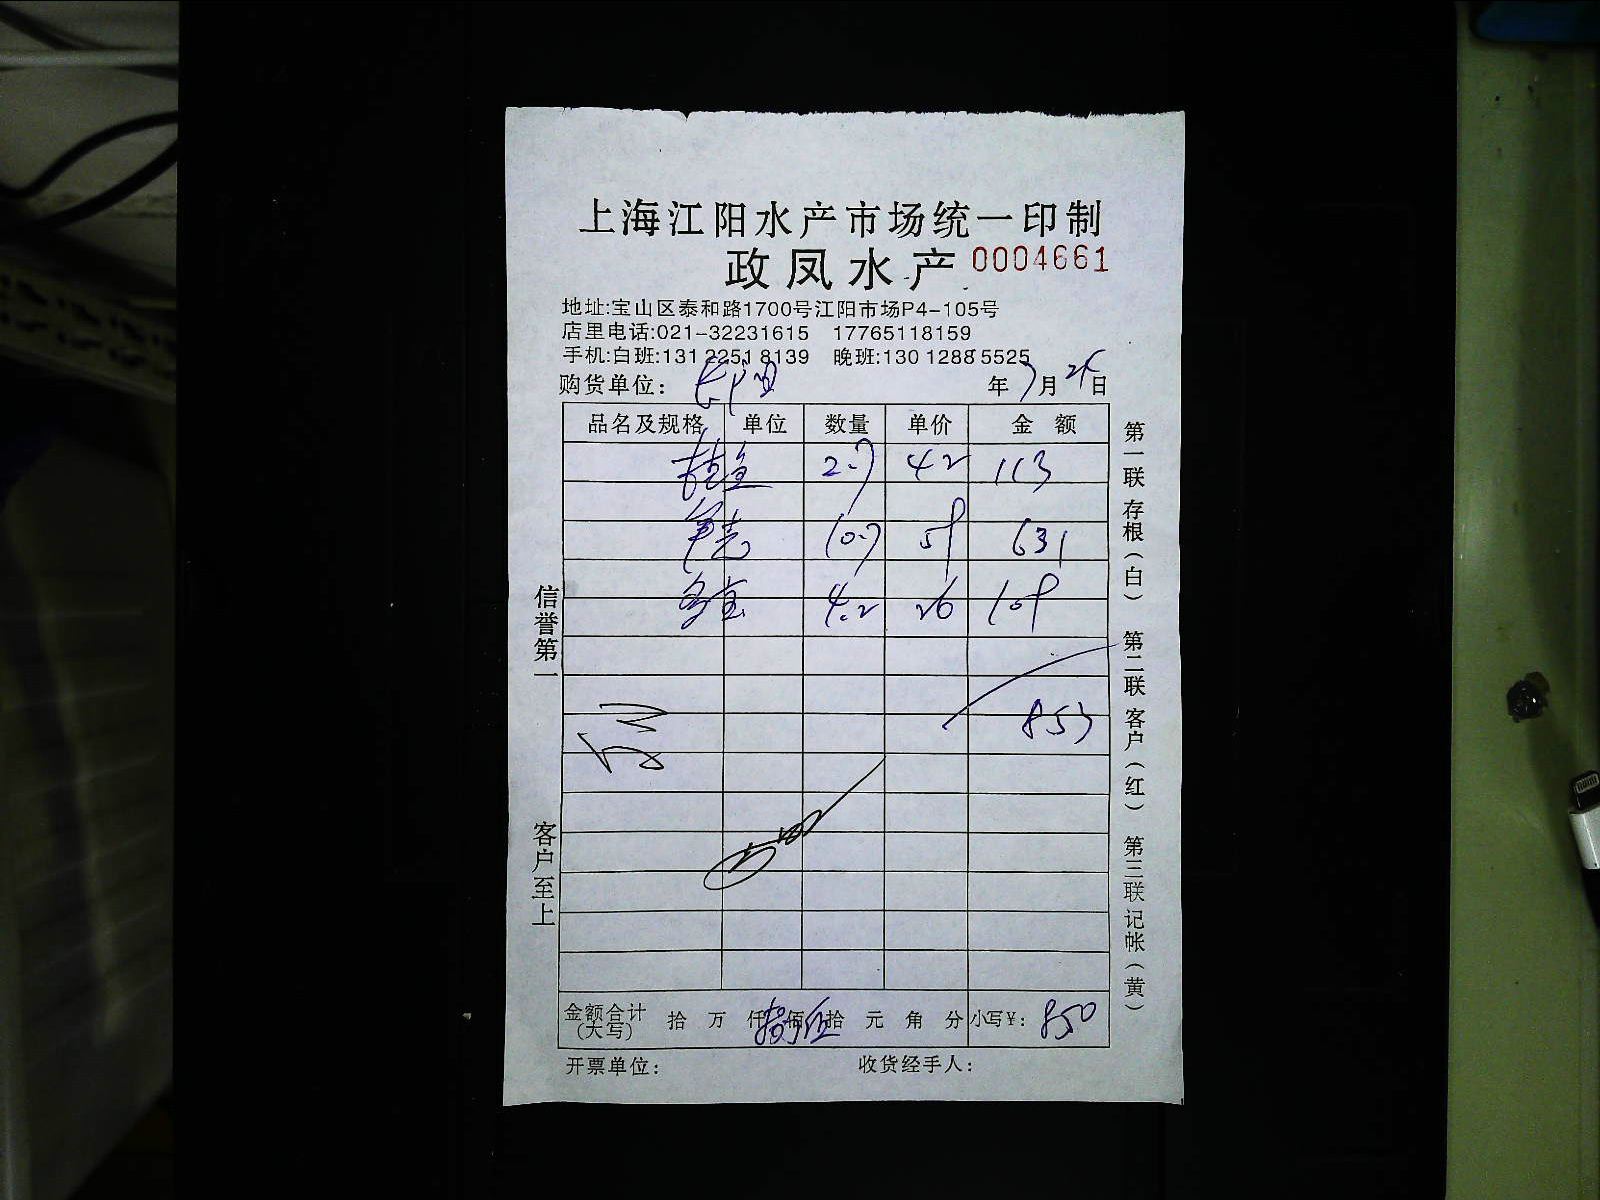 上海江阳水产市场统一印制
政凤水产 0004661
地址:宝山区泰和路1700号江阳市场P4-105号
店里电话:021-32231615 17765118159
手机:白班:131 2251 8139 晚班:130 1288 5525
购货单位: 年 7月 日
品名及规格 单位 数量 单价 金额
桂鱼 2.7 42 113
10.7 59 631
多宝 4.2 26 109
853
金额合计(大写) 拾 万 仟 捌佰伍拾 元 角 分 小写¥: 850
开票单位: 收货经手人:
信誉第一 客户至上
第一联 存根(白) 第二联 客户(红) 第三联 记帐(黄)